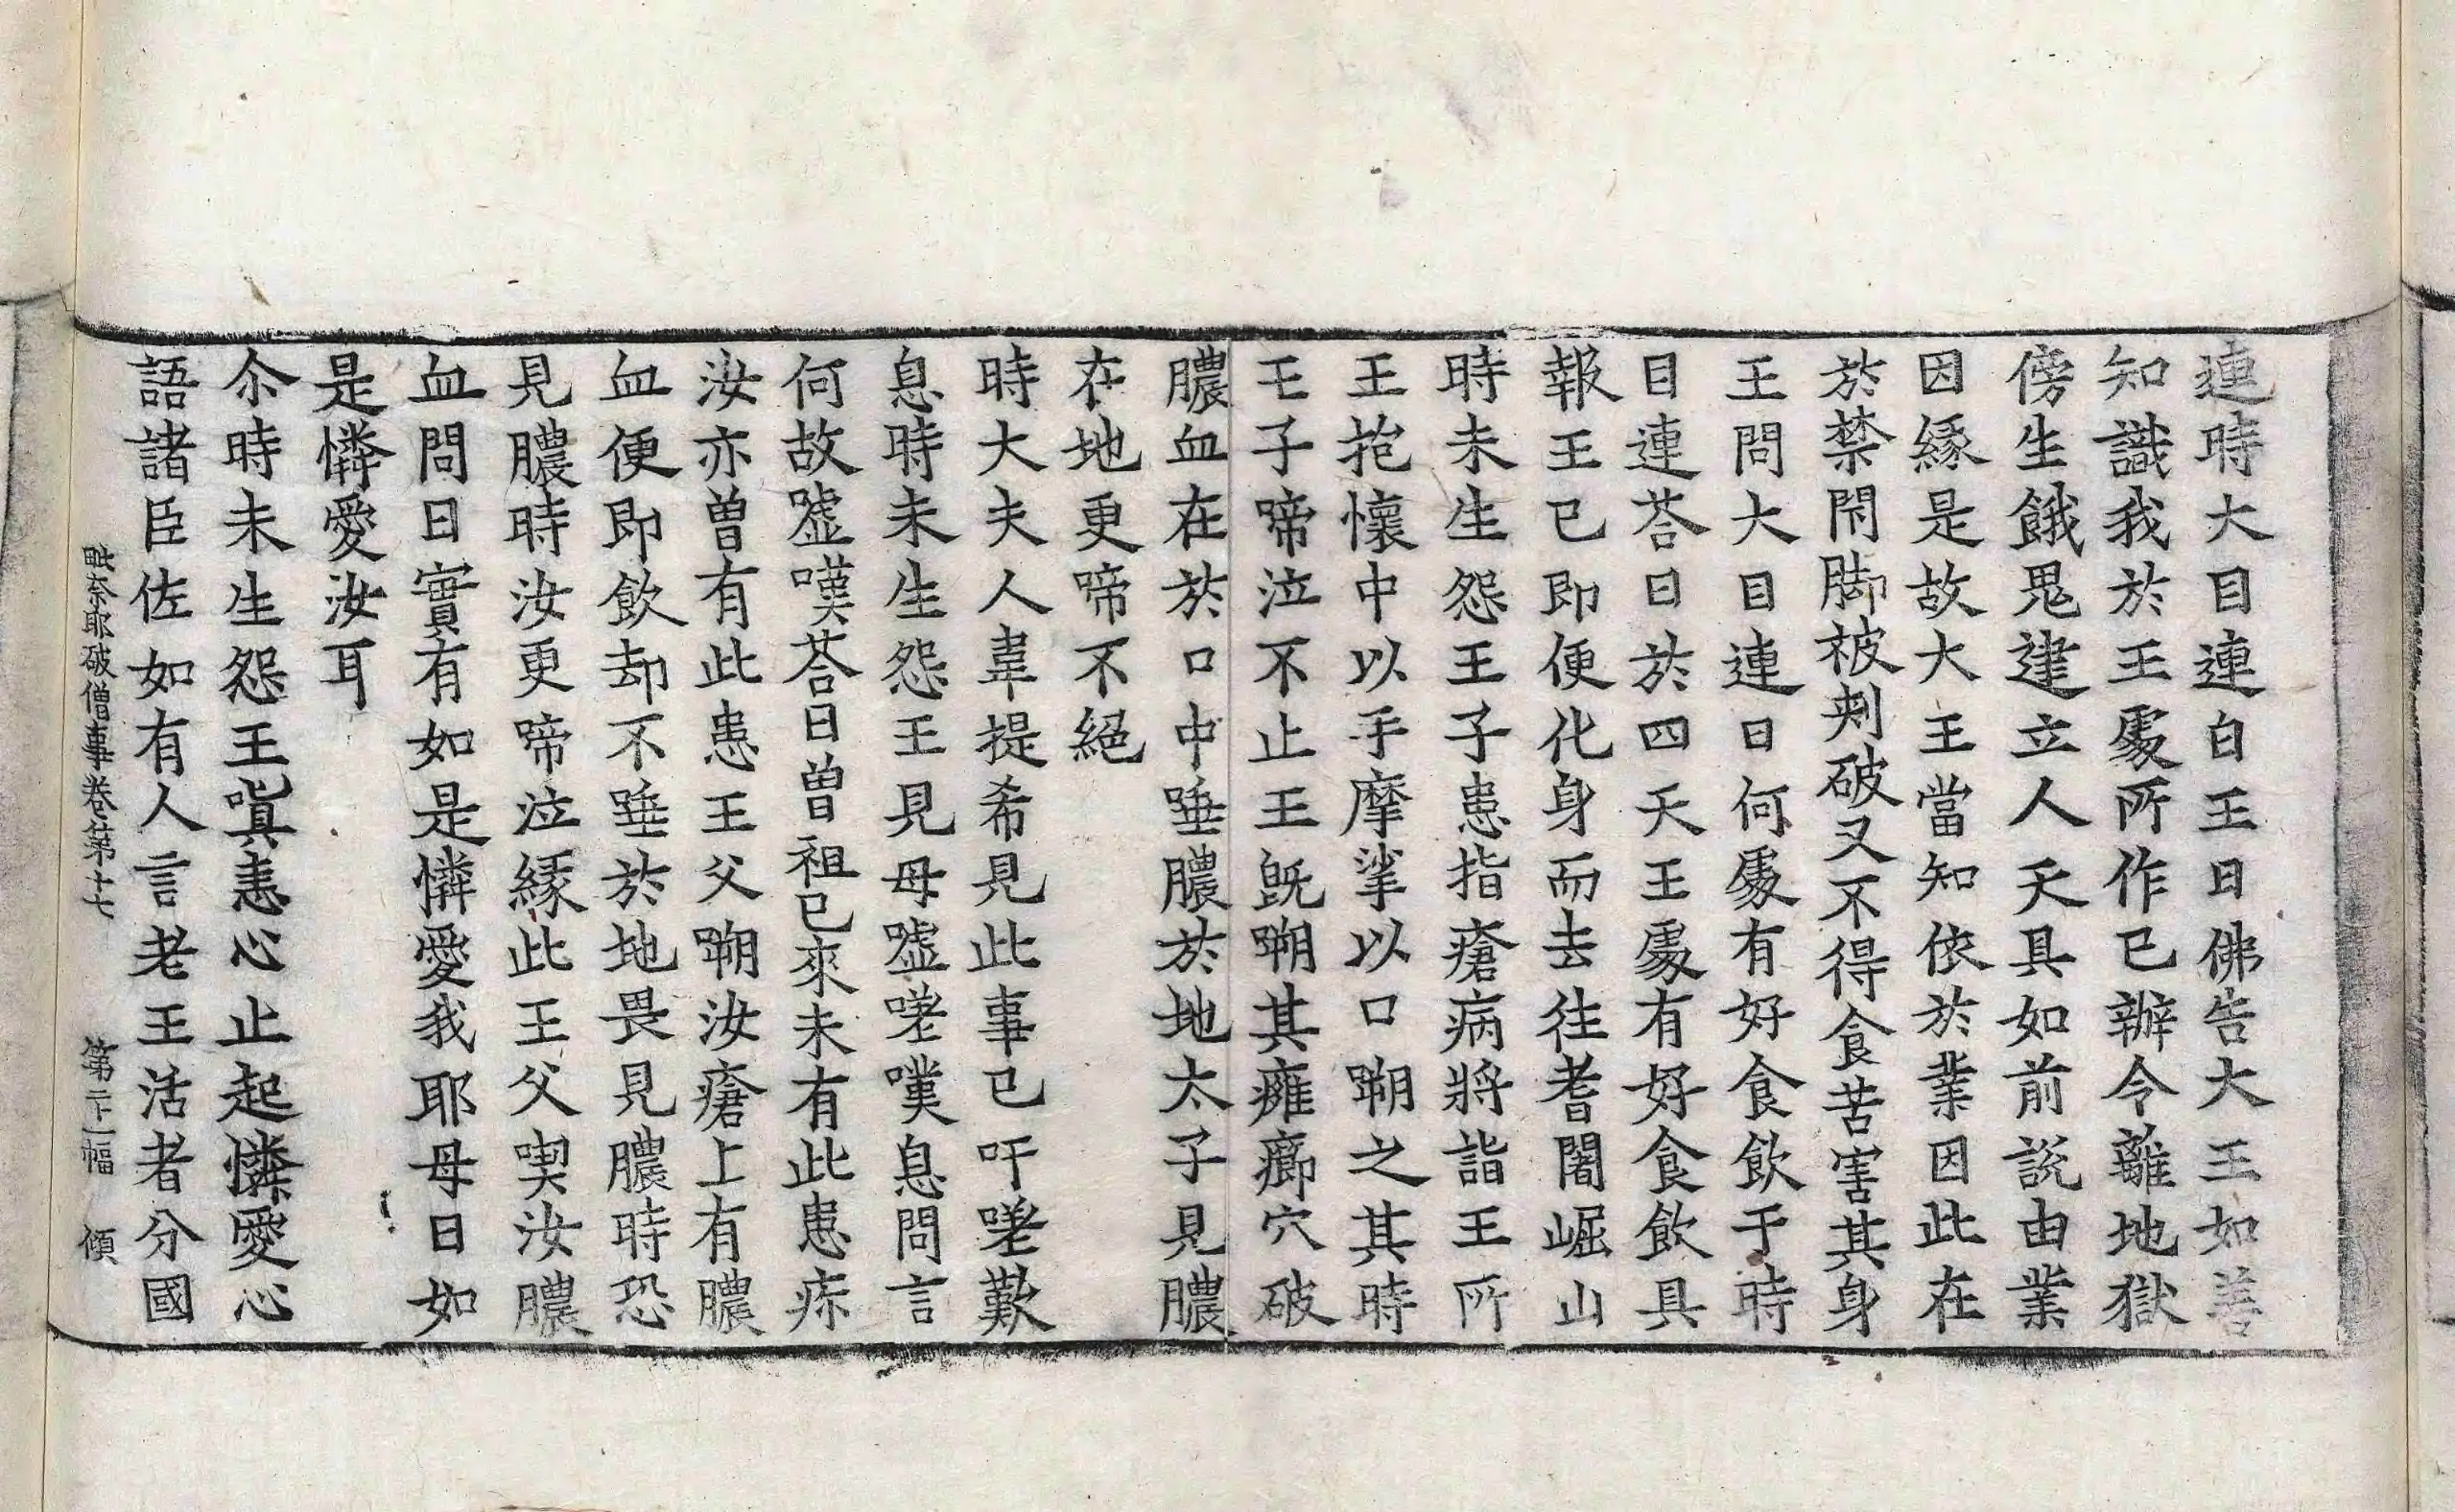 連時大目連白王曰佛告大王如善
知識我於王𠁅所作已辦今離地獄
傍生餓鬼建立人天具如前說由業
因緣是故大王當知依於業因此在
於禁閇脚被剌破又不得食苦害其身
王問大目連曰何處有好食飲于時
目連荅曰於四天王處有好食飲具
報王已即便化身而去往耆闍崛山
時未生怨王子患指瘡病將詣王所
王抱懷中以手摩挲以口嗍之其時
王子啼泣不止王既嗍其癰癤穴破
膿血在於口中唾膿於地太子見膿
在地更啼不絕
時大夫人韋提希見此事已吁嗟歎
息時未生怨王見母噓嗟嘆息問言
何故噓嘆荅曰曾祖已來未有此患疾
汝亦曾有此患王父嗍汝瘡上有膿
血便即飲却不唾於地畏見膿時恐
見膿時汝更啼泣緣此王父喫汝膿
血問曰實有如是憐愛我耶母曰如
是憐愛汝耳
尒時未生怨王嗔恚心止起憐愛心
語諸臣佐如有人言老王活者分國
毗奈耶破僧事卷第十七 第二十一幅 傾